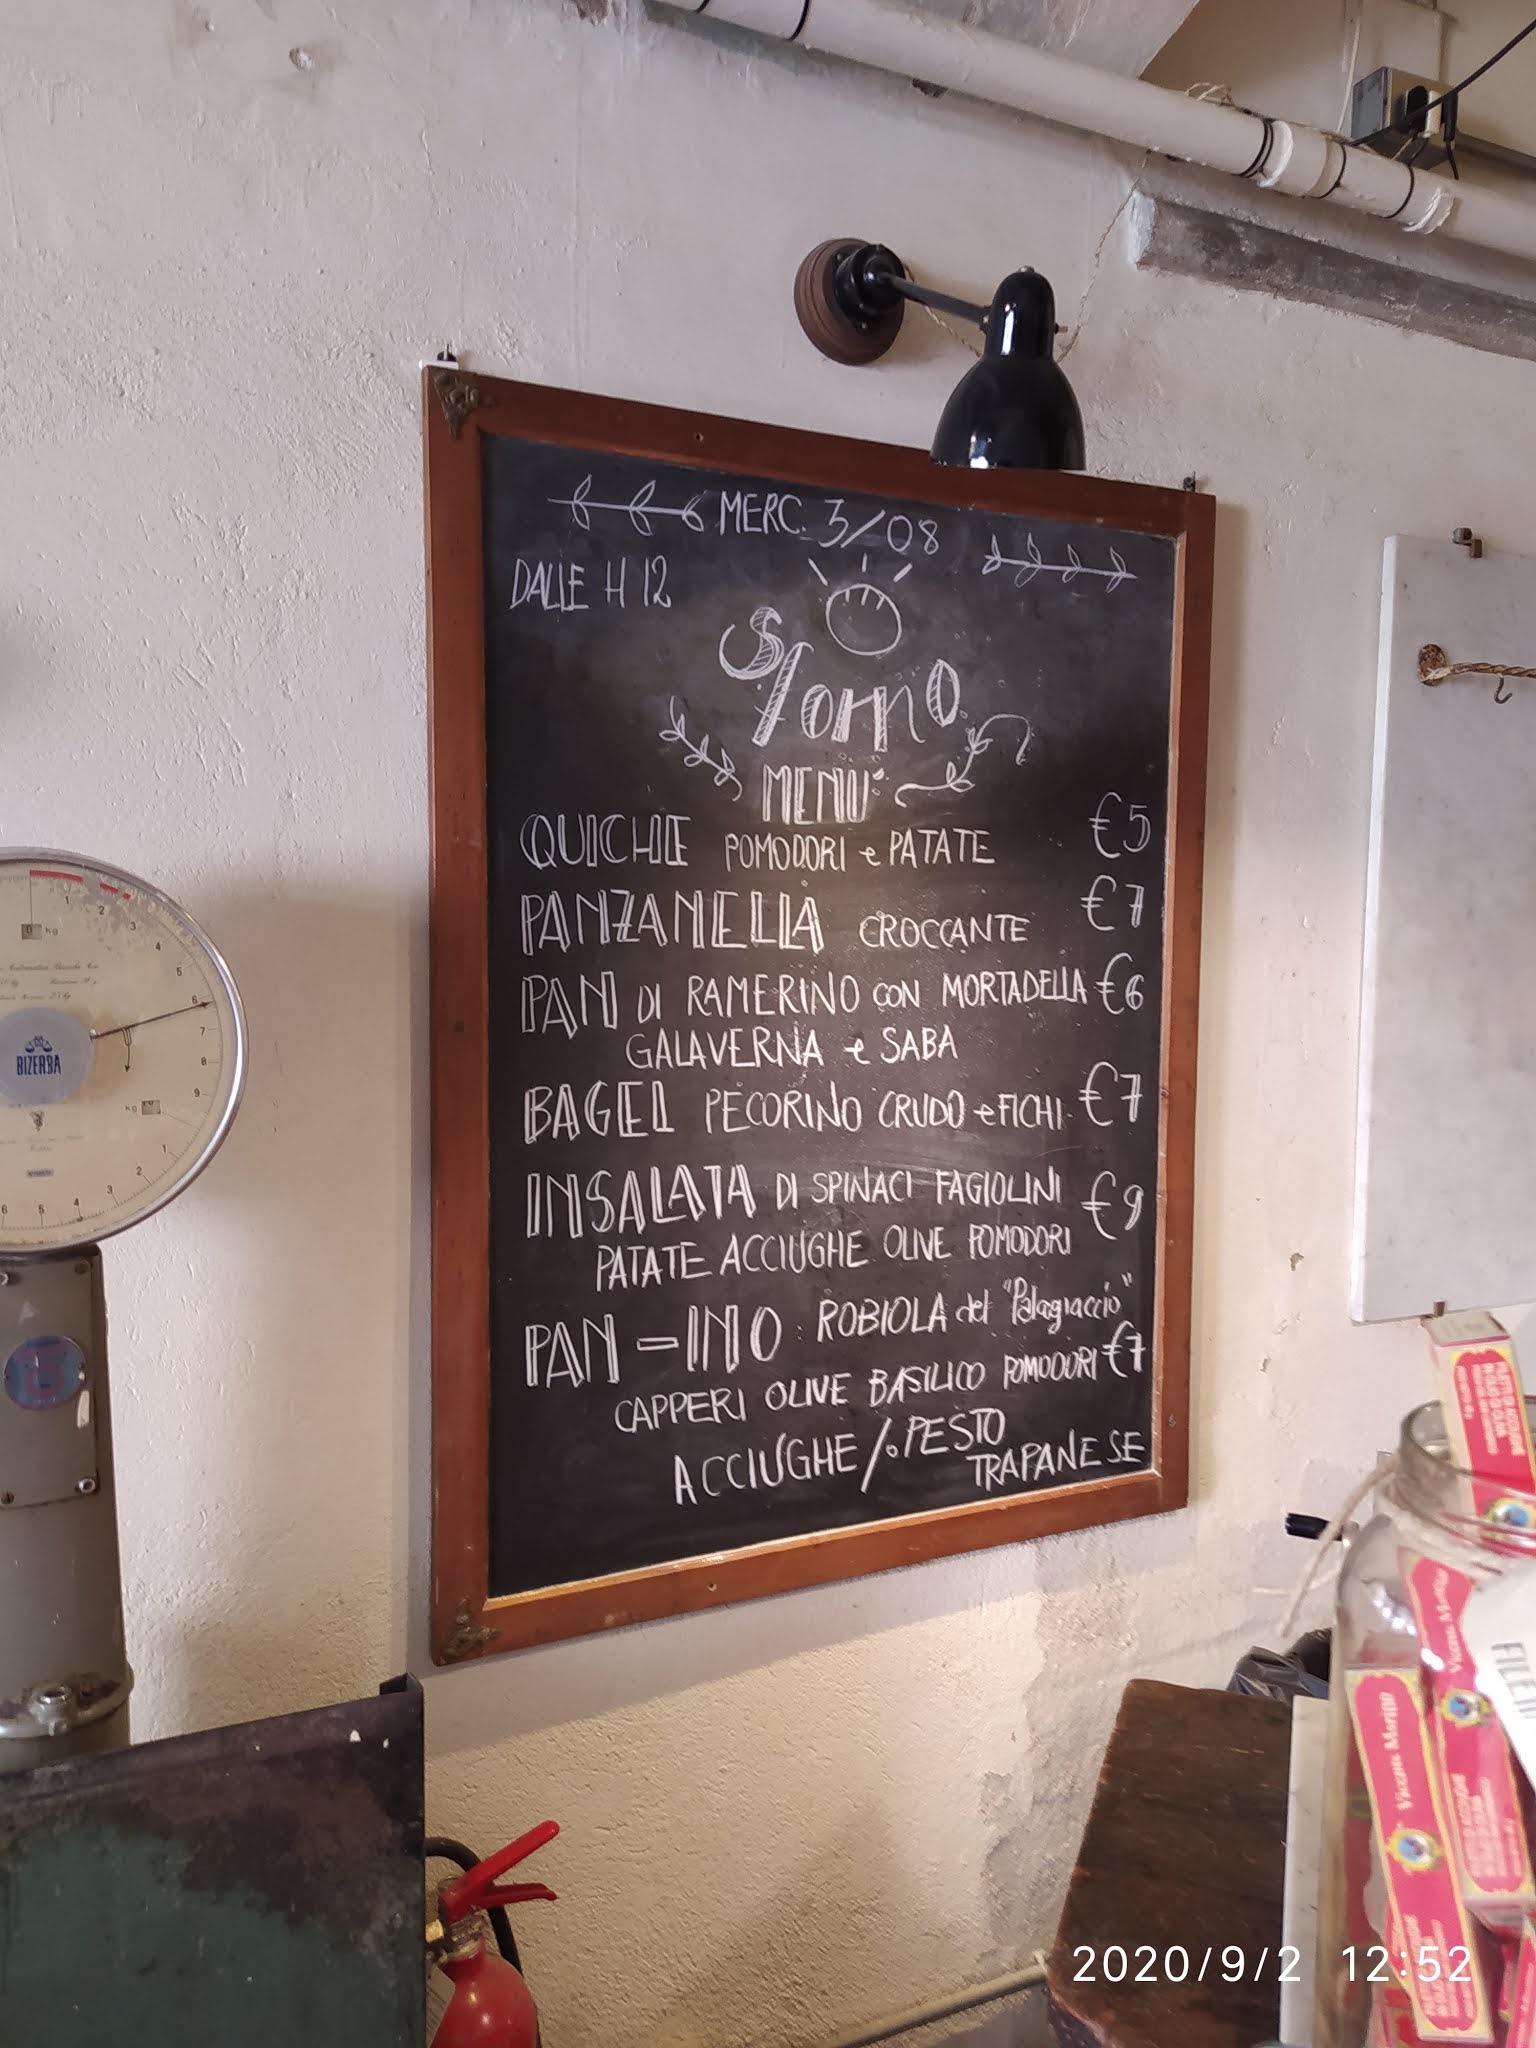 MERC. 3/08
DALLE H 12
S/orno
MENU'
QUICHE POMODORI e PATATE €5
PANZANELLA CROCCANTE €7
PAN DI RAMERINO CON MORTADELLA €6
GALAVERNA e SABA
BAGEL PECORINO CRUDO e FICHI €7
INSALATA DI SPINACI FAGIOLINI €9
PATATE ACCIUGHE OLIVE POMODORI
PAN-INO: ROBIOLA del "Palagiaccio"
CAPPERI OLIVE BASILICO POMODORI €7
ACCIUGHE/o PESTO
TRAPANESE
BIZERBA
0 kg 1 2 3 4 5 6 7 8 9
kg
1
2
3
4
5
6
Vicens Marino
FILETTI
2020/9/2 12:52